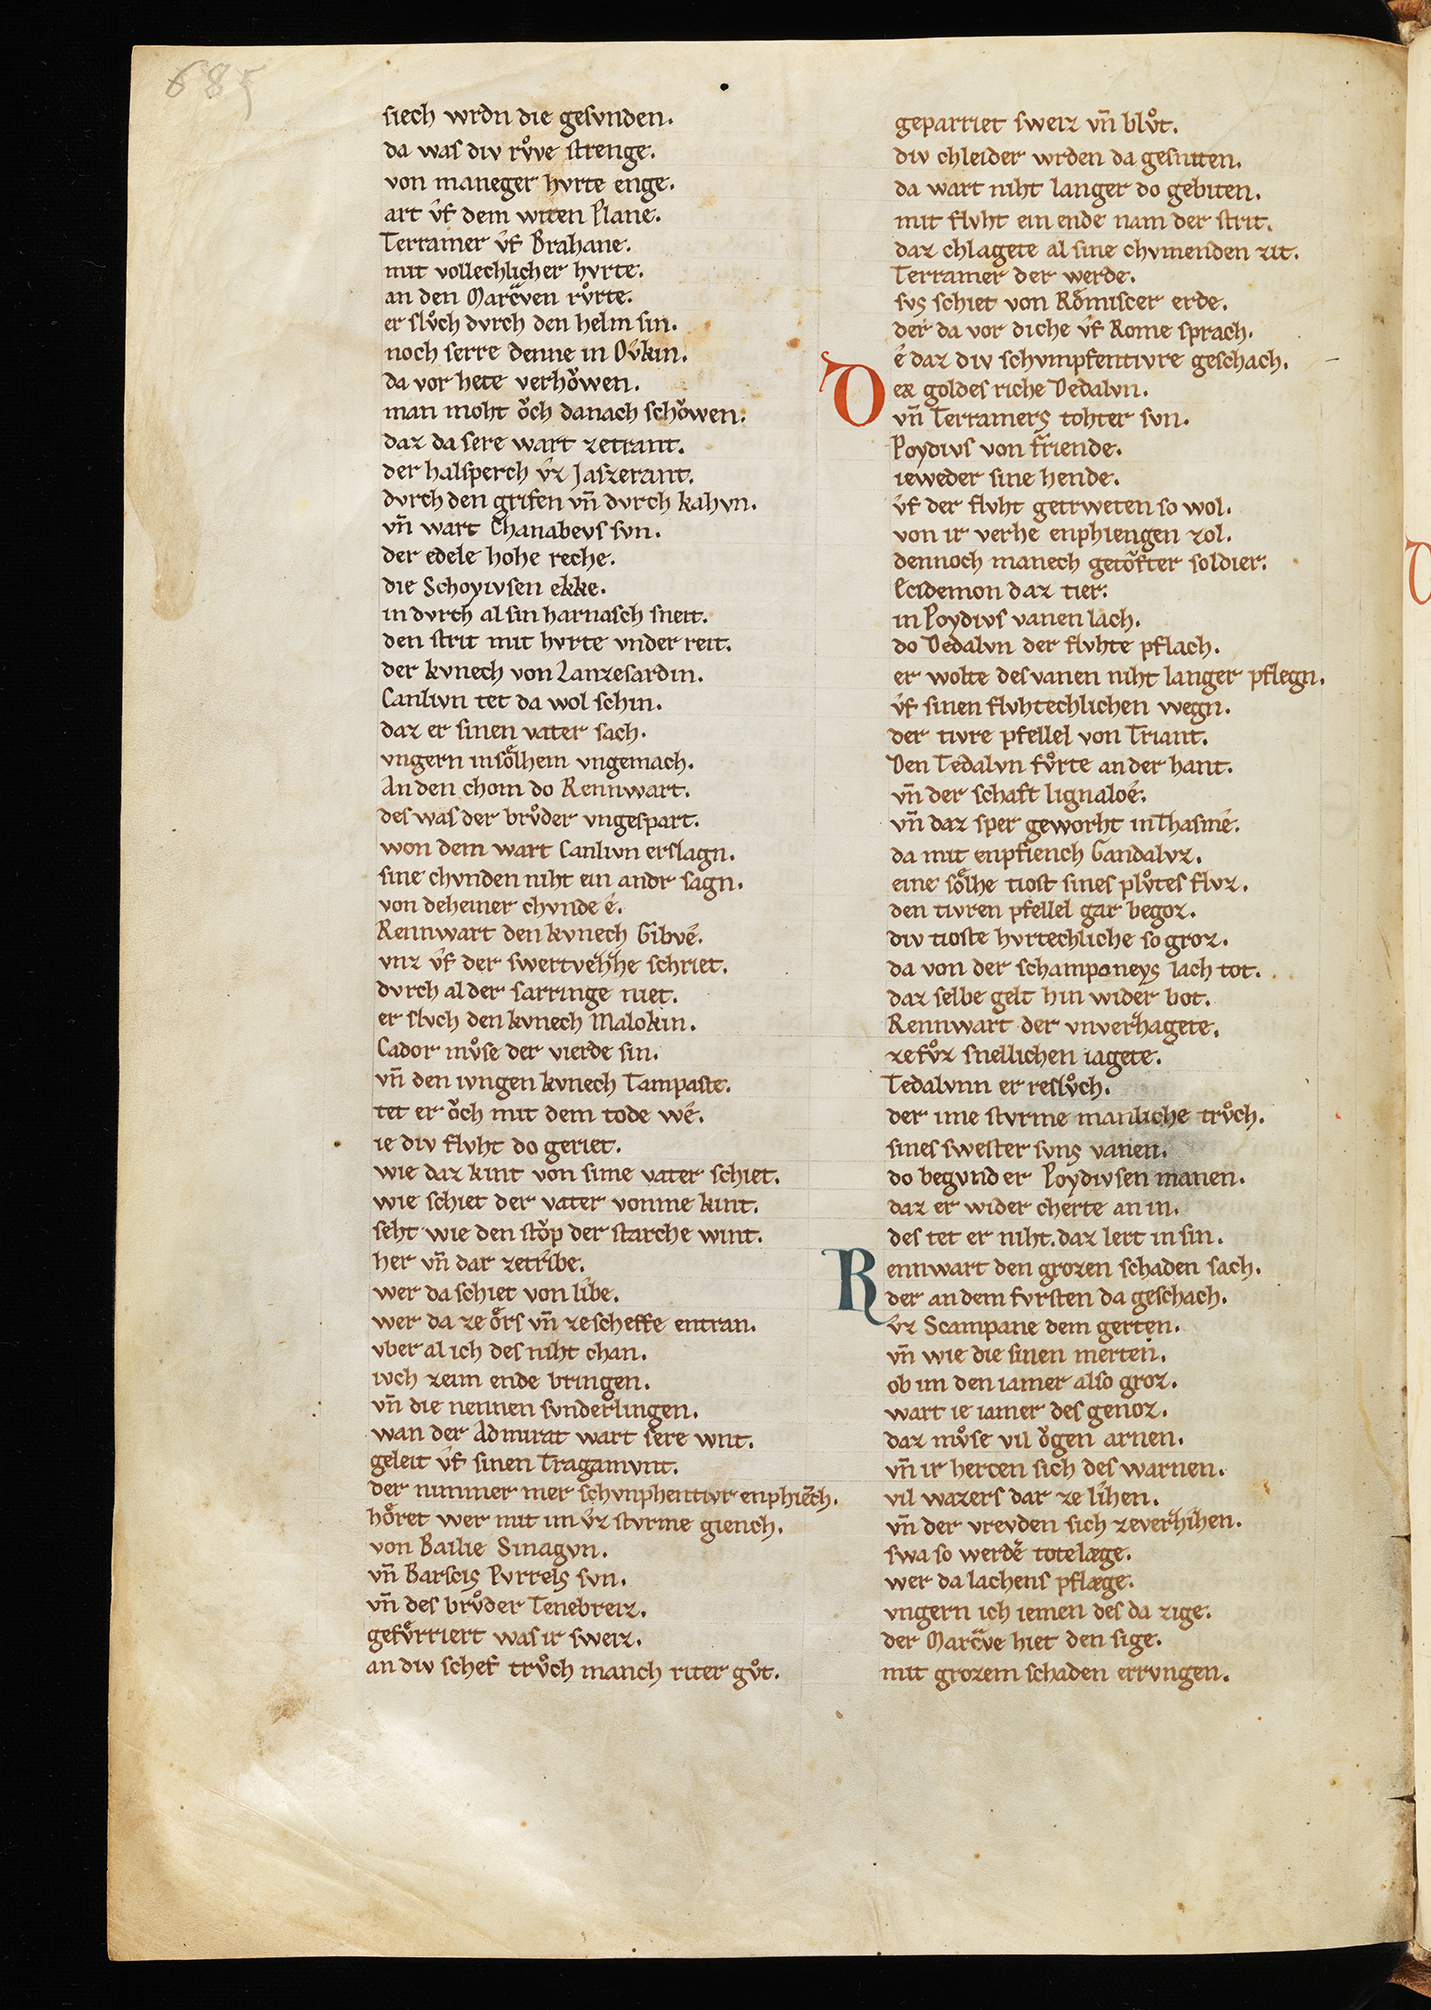 685
siech wrdn die gesvnden.
da was div rv̊ve strenge.
von maneger hvrte enge.
art v́f dem witen Plane.
Terramer v́f Brahane.
mit vollechlicher hvrte.
an den Marcͣven rv̊rte.
er slv̊ch dvrch den helm sin.
noch serre denne in Ov́kin.
da vor hete verhoͮwen.
man moht oͮch danach schoͮwen.
daz da sere wart zetrant.
der halsperch v́z Jaszerant.
dvrch den grifen vn̄ dvrch kahvn.
vn̄ wart Chanabevs svn.
der edele hohe reche.
die Schoyivsen ekke.
in dvrch al sin harnasch sneit.
den strit mit hvrte vnder reit.
der kvnech von Lanzesardin.
Canlivn tet da wol schin.
daz er sinen vater sach.
vngern in soͤlhem vngemach.
An den chom do Rennwart.
des was der brv̊der vngespart.
won dem wart Canlivn erslagn.
sine chvnden niht ein andr sagn.
von deheiner chvnde é.
Rennwart den kvnech Gibvé.
vnz v́f der swertvehhe schriet.
dvrch al der sarringe niet.
er slvch den kvnech Malokin.
Cador mv̊se der vierde sin.
vn̄ den ivngen kvnech Tampaste.
tet er oͮch mit dem tode wé.
ie div flvht do geriet.
wie daz kint von sime vater schiet.
wie schiet der vater vonme kint.
seht wie den stoͮp der starche wint.
her vn̄ dar zetribe.
wer da schiet von libe.
wer da ze oͤrs vn̄ ze scheffe entran.
vber al ich des niht chan.
ivch zeim ende bringen.
vn̄ die nennen svnderlingen.
wan der Admirat wart sere wnt.
geleit v́f sinen Tragamvnt.
der nimmer mer schvnphentivr enphiēch.
hoͤret wer mit im v́z stvrme giench.
von Bailie Sinagvn.
vn̄ Barscis Pvrrels svn.
vn̄ des brv̊der Tenebreiz.
gefvͤrriert was ir sweiz.
an div schef trv̊ch manch riter gv̊t.
geparriet sweiz vn̄ blv̊t.
div chleider wrden da gesniten.
da wart niht langer do gebiten.
mit flvht ein ende nam der strit.
daz chlagete al sine chvmenden zit.
Terramer der werde.
svs schiet von Roͤmiscer erde.
der da vor diche v́f Rome sprach.
é daz div schvmpfentivre geschach.
Der goldes riche Dedalvn.
vn̄ Terramers tohter svn.
Poydivs von friende.
ieweder sine hende.
v́f der flvht getrweten so wol.
von ir verhe enphiengen zol.
dennoch manech getoͮfter soldier.
Ecidemon daz tier.
in Poydivs vanen lach.
do Dedalvn der flvhte pflach.
er wolte des vanen niht langer pflegn.
v́f sinen flvhtechlichen wegn.
der tivre pfellel von Triant.
Den Tedalvn fv̊rte an der hant.
vn̄ der schaft lignaloé.
vn̄ daz sper geworht in Thasmé.
da mit enpfiench Gandalvz.
eine soͤlhe tiost sines plv̊tes flvz.
den tivren pfellel gar begoz.
div tioste hvrtechliche so groz.
da von der schamponeys lach tot.
daz selbe gelt hin wider bot.
Rennwart der vnverzhagete.
ze fv̊z snellichen iagete.
Tedalvnn er reslv̊ch.
der ime stvrme manliche trv̊ch.
sines swester svns vanen.
do begvnd er Poydivsen manen.
daz er wider cherte an in.
des tet er niht. daz lert in sin.
Rennwart den grozen schaden sach.
der an dem fvrsten da geschach.
v́z Scampane dem gerten.
vn̄ wie die sinen merten.
ob im den iamer also groz.
wart ie iamer des genoz.
daz mv̊se vil oͮgen arnen.
vn̄ ir hercen sich des warnen.
vil wazers dar ze lihen.
vn̄ der vrevden sich zeverzhihen.
swa so werdē totelæge.
wer da lachens pflæge.
vngern ich iemen des da zige.
der Marcͣve hiet den sige.
mit grozem schaden errvngen.